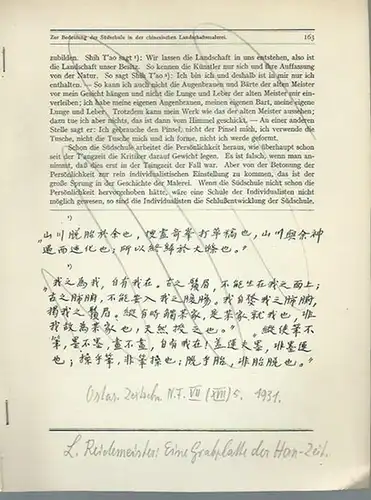 Zur Bedeutung der Südschule in der chinesischen Landschaftsmalerei. 163
zubilden. Shih T'ao sagt ¹): Wir lassen die Landschaft in uns entstehen, also ist
die Landschaft unser Besitz. So kennen die Künstler nur sich und ihre Auffassung
von der Natur. So sagt Shih T'ao ²): Ich bin ich und deshalb ist in mir nur ich
enthalten. — So kann ich auch nicht die Augenbrauen und Bärte der alten Meister
vor mein Gesicht hängen und nicht die Lunge und Leber der alten Meister mir ein-
verleiben; ich habe meine eigenen Augenbrauen, meinen eigenen Bart, meine eigene
Lunge und Leber. Trotzdem kann mein Werk wie das der alten Meister aussehen;
dann tue ich aber nichts, das ist dann vom Himmel geschickt, — An einer anderen
Stelle sagt er: Ich gebrauche den Pinsel, nicht der Pinsel mich, ich verwende die
Tusche, nicht die Tusche mich und ich forme, nicht ich werde geformt.
Schon die Südschule arbeitet die Persönlichkeit heraus, wie überhaupt schon
seit der T'angzeit die Kritiker darauf Gewicht legen. Es ist falsch, wenn man an-
nimmt, daß dies erst in der Tsingzeit der Fall war. Aber von der Betonung der
Persönlichkeit zur rein individualistischen Einstellung zu kommen, das ist der
große Sprung in der Geschichte der Malerei. Wenn die Südschule nicht schon die
Persönlichkeit hervorgehoben hätte, wäre eine Schule der Individualisten nicht
möglich gewesen, so sind die Individualisten die Schlußentwicklung der Südschule.
¹)
„山川脫胎於余也，搜盡奇峯打草稿也，山川與余神
遇而迹化也；所以終歸於大滌也。"
²)
„我之爲我，自有我在。古之鬚眉，不能生在我之面上；
古之肺腑，不能安入我之腹腸。我自發我之肺腑，
揭我之鬚眉。縱有時觸某家，是某家就我也，非
我故爲某家也，天然授之也。" „縱使筆不
筆，墨不墨，畫不畫，自有我在！蓋運夫墨，非墨運
也；操乎筆，非筆操也；脫乎胎，非胎脫也。"
Ostas. Zeitschr. N.F. VII (XVII) 5. 1931.
L. Reidemeister: Eine Grabplatte der Han-Zeit.